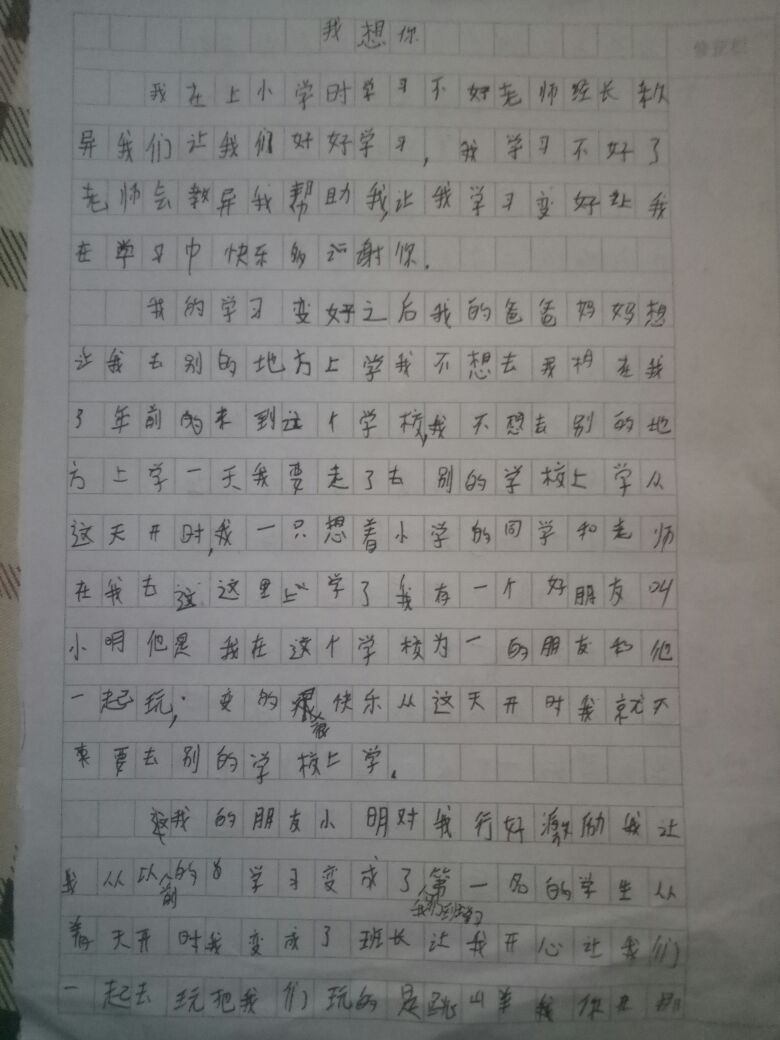 我想你
我在上小学时学习不好老师经长来教
导我们让我们好好学习，我学习不好了
老师会教导我帮助我，让我学习变好让我
在学习中快乐的谢你.
我的学习变好之后我的爸爸妈妈想
让我去别的地方上学我不想去我在我
了年前的来到这个学校,我不想去别的地
方上学一天我要走了去别的学校上学从
这天开时,我一只想着小学的同学和老师
在我去这里上学了我有一个好朋友叫
小明他是我在这个学校为一的朋友和他
一起玩,变的很快乐从这天开时我就不
来要去别的学校上学.
我的朋友小明对我行好激励我让
我从以前的学习变成了第一名的学生从
我们到学习
着天开时我变成了班长让我开心让我们
一起去玩把我们玩的是跳山羊我你在那